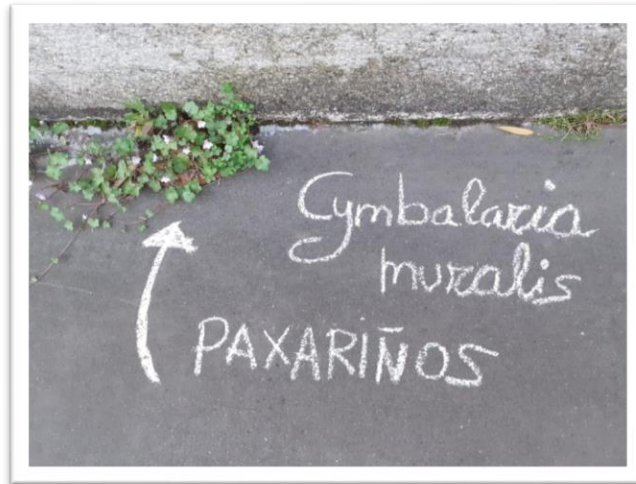 Cymbalaria
muralis
PAXARIÑOS